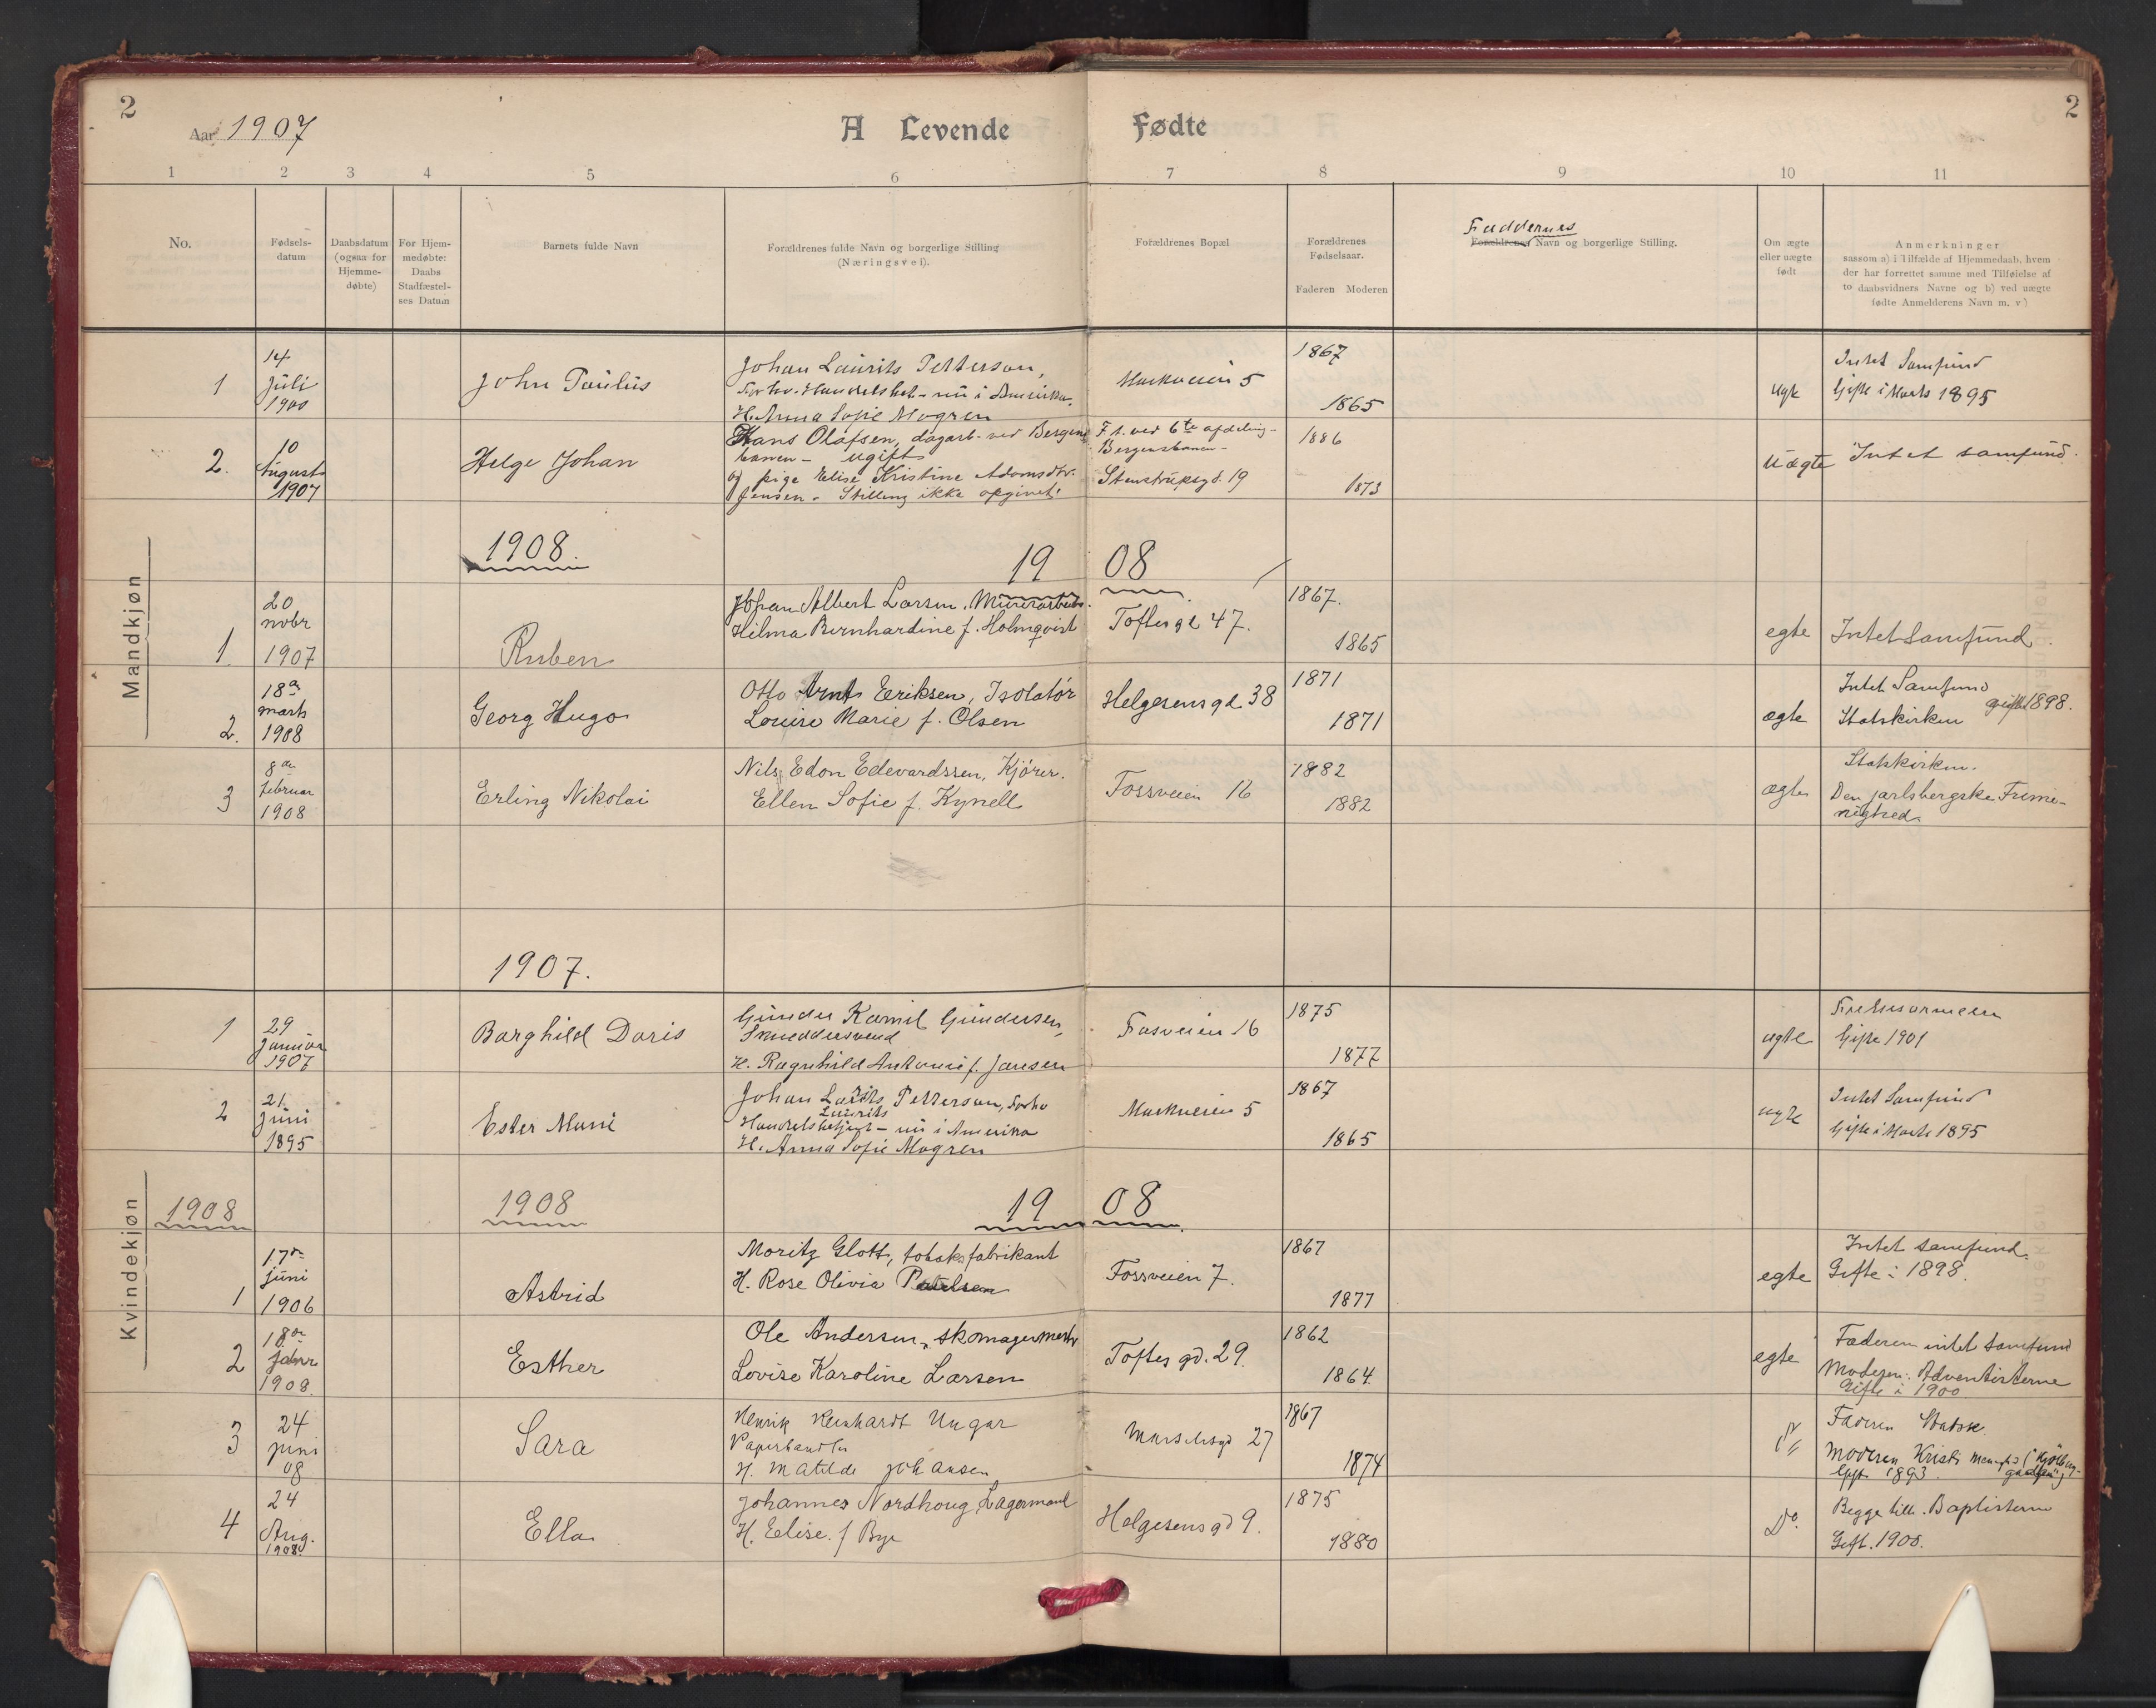 2
Aar 1907
A Levende Fødte
2
1 2 3 4 5 6 7 8 9 10 11
No.
Fødsels-
datum
Daabsdatum
(ogsaa for
Hjemme-
døbte)
For Hjem-
medøbte:
Daabs
Stadfæstel-
ses Datum
Barnets fulde Navn
Forældrenes fulde Navn og borgerlige Stilling
(Næringsvei).
Forældrenes Bopæl
Forældrenes
Fødselsaar.
Faderen Moderen
Faddernes
Forældrenes Navn og borgerlige Stilling.
Om ægte
eller uægte
født
Anmerkninger
sassom a) i Tilfælde af Hjemmedaab, hvem
der har forrettet samme med Tilføielse af
to daabsvidners Navne og b) ved uægte
fødte Anmelderens Navn m. v.)
Mandkjøn
1
14
Juli
1900
John Paulus
Johan Laurits Petterson,
nu i Amerika.
H. Anna Sofie Mogren
Markveien 5
1867
1865
Intet Samfund
Gifte i Marts 1895
2.
10
August
1907
Helge Johan
Hans Olafsen, dagarb. ved Bergens
banen - ugift
og pige Elise Kristine Adamsdtr.
Jensen - Stilling ikke opgivet.
F 1. ved 6te afdeling-
Bergensbanen-
Stenstrupsgd. 19
1886
1873
Uægte
Intet samfund.
1908.
1908
1
20
novbr
1907
Ruben
Johan Albert Larsen, Murerarbeider.
Hilma Bernhardine f. Holmqvist
Toftesgd 47.
1867.
1865
egte
Intet Samfund.
2.
18de
marts
1908
Georg Hugo
Otto Arnt Eriksen, Isolatør
Louise Marie f. Olsen
Helgesensgd. 38
1871
1871
ægte
Intet Samfund
Statskirken gifte 1898.
3
8de
februar
1908
Erling Nikolai
Nils Edon Edevardssen, Kjører.
Ellen Sofie f. Kynell
Fossveien 16
1882
1882
ægte
Statskirken.
Den jarlsbergske Frime-
nighed.
1907.
Kvindekjøn
1
29
Januar
1907
Borghild Doris
Gunder Kamil Gundersen,
Skreddersvend
H. Ragnhild Antonie f. Jansen
Fosveien 16
1875
1877
ægte
Frelsesarmeen
Gifte 1901
2
21
Juni
1895
Ester Marie
Johan Laurits Petterson, forhv
Laurits
Handelsbetjent - nu i Amerika
H. Anna Sofie Mogren
Markveien 5
1867
1865
ægte
Intet Samfund
Gifte i Marts 1895
1908
1908
1908
1
17de
juni
1906
Astrid
Moritz Glott, tobaksfabrikant
H. Rose Olivia Paulsen
Fossveien 7.
1867
1877
egte
Intet samfund.
Gifte i 1898.
2
18de
1908.
Esther
Ole Andersen, skomagermester
Lovise Karoline Larsen
Toftes gd. 29.
1862
1864.
egte
Faderen intet samfund
Moderen: Adventisterne
Gifte i 1900
3
24
juni
08
Sara
Henrik Reinhardt Ungar
H. Matilde Johansen
27
1867
1874
Faderen Statsk.
Moderen Kristi
Gift 1893
4
24
Aug.
1908.
Ella
Johannes Nordhoug, Lagermand
H. Elise. f Bye
Helgesensgd 9.
1875
1880
Do.
Begge tilh. Baptisterne
Gift. 1900.